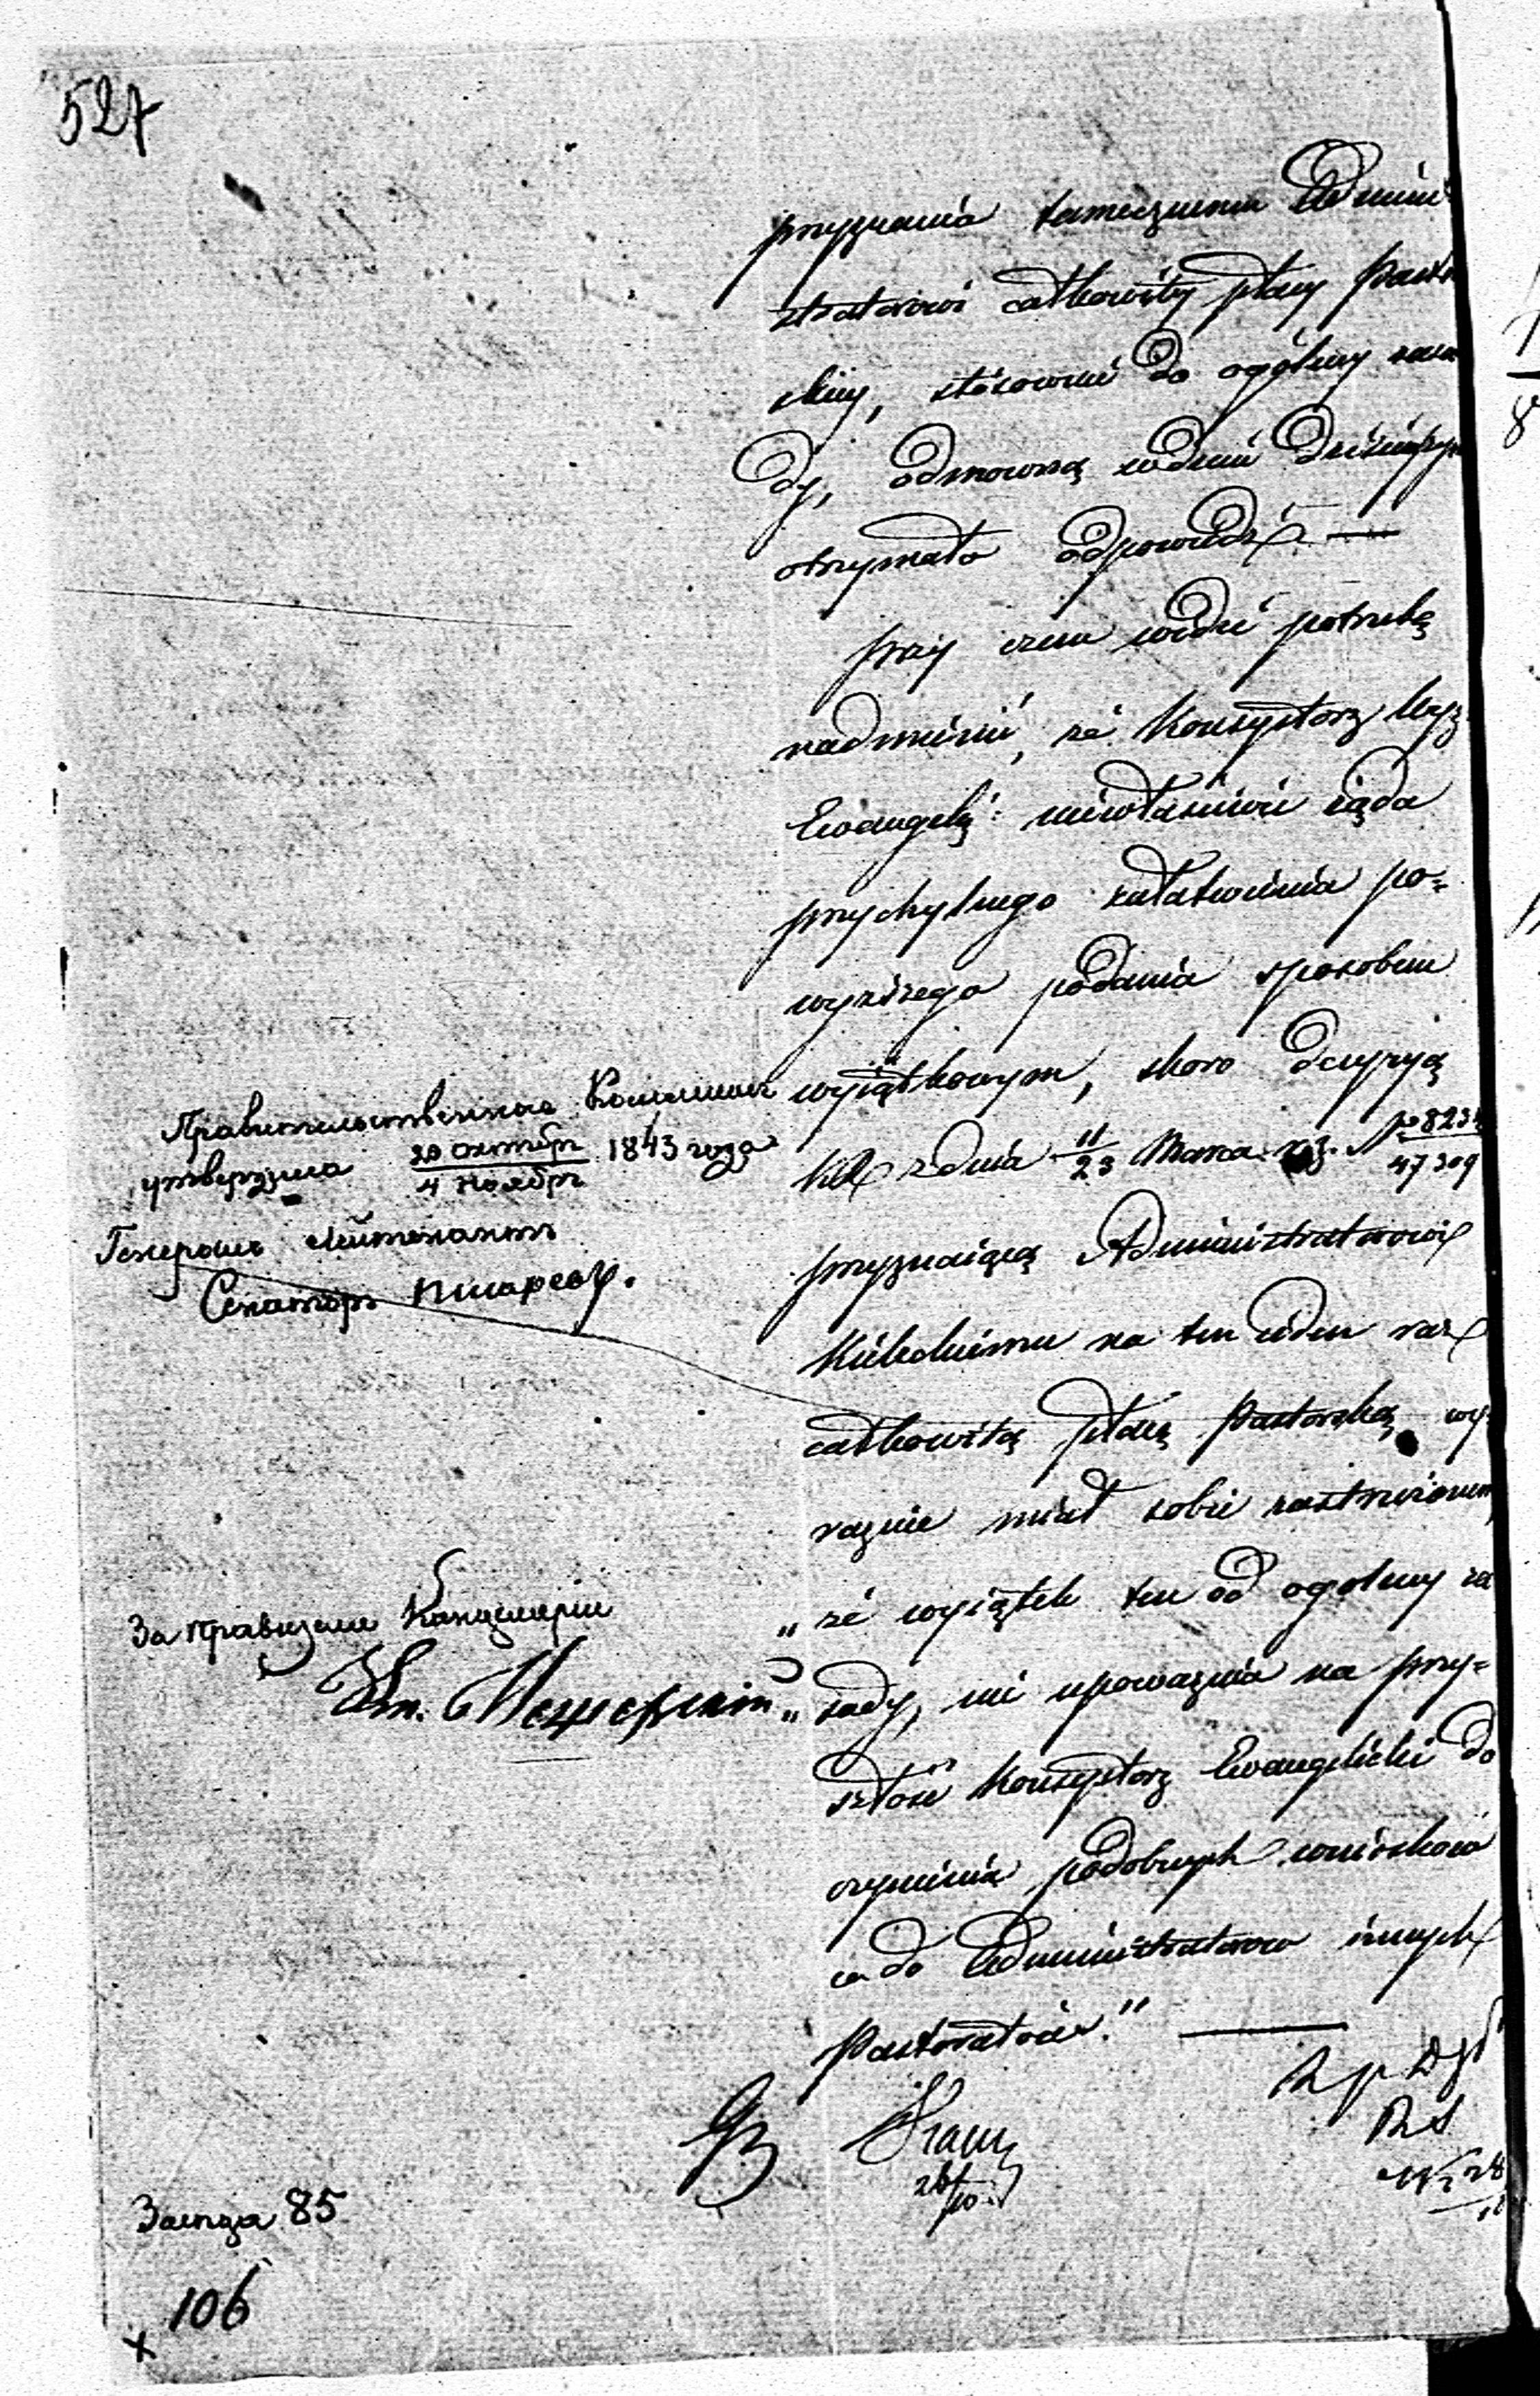 527
przyznania tamecznemu Admini
stratorowi całkowitéy płacy Pastor
skiey, stósownie do ogólney zasa
dy, odmowną w dniu dzisiejszym
otrzymała odpowiedź —
przy czem widzi potrzebę
nadmienić, że Konsystorz Wyz
Ewangelic: niewłaściwie żąda
przychylnego załatwienia po=
wyższego podania sposobem
wyiątkowym, skoro decyzyą
KR z dnia 11/23 Marca r. z. № 8234/47309
przyznaiącą Administratorowi
na ten ieden raz
całkowitą płacę Pastorską, wy
raznie miał sobie zastrzeżonem,
„ że wyiątek ten od ogolney za
„ sady, nie upoważnia na przy=
szłość Konsystorz Ewangelicki do
czynienia podobnych wniosków
co do Administratorow innych
Pastoratów." —
Правительственная Коммисия
утвердила 20 октябр/4 ноябр 1843 года
Генерал Лейтенант
Сенатор Писарев.
За правителя Канцелярии
Кн. Мещерский
26/10
Заседа 85
106
x